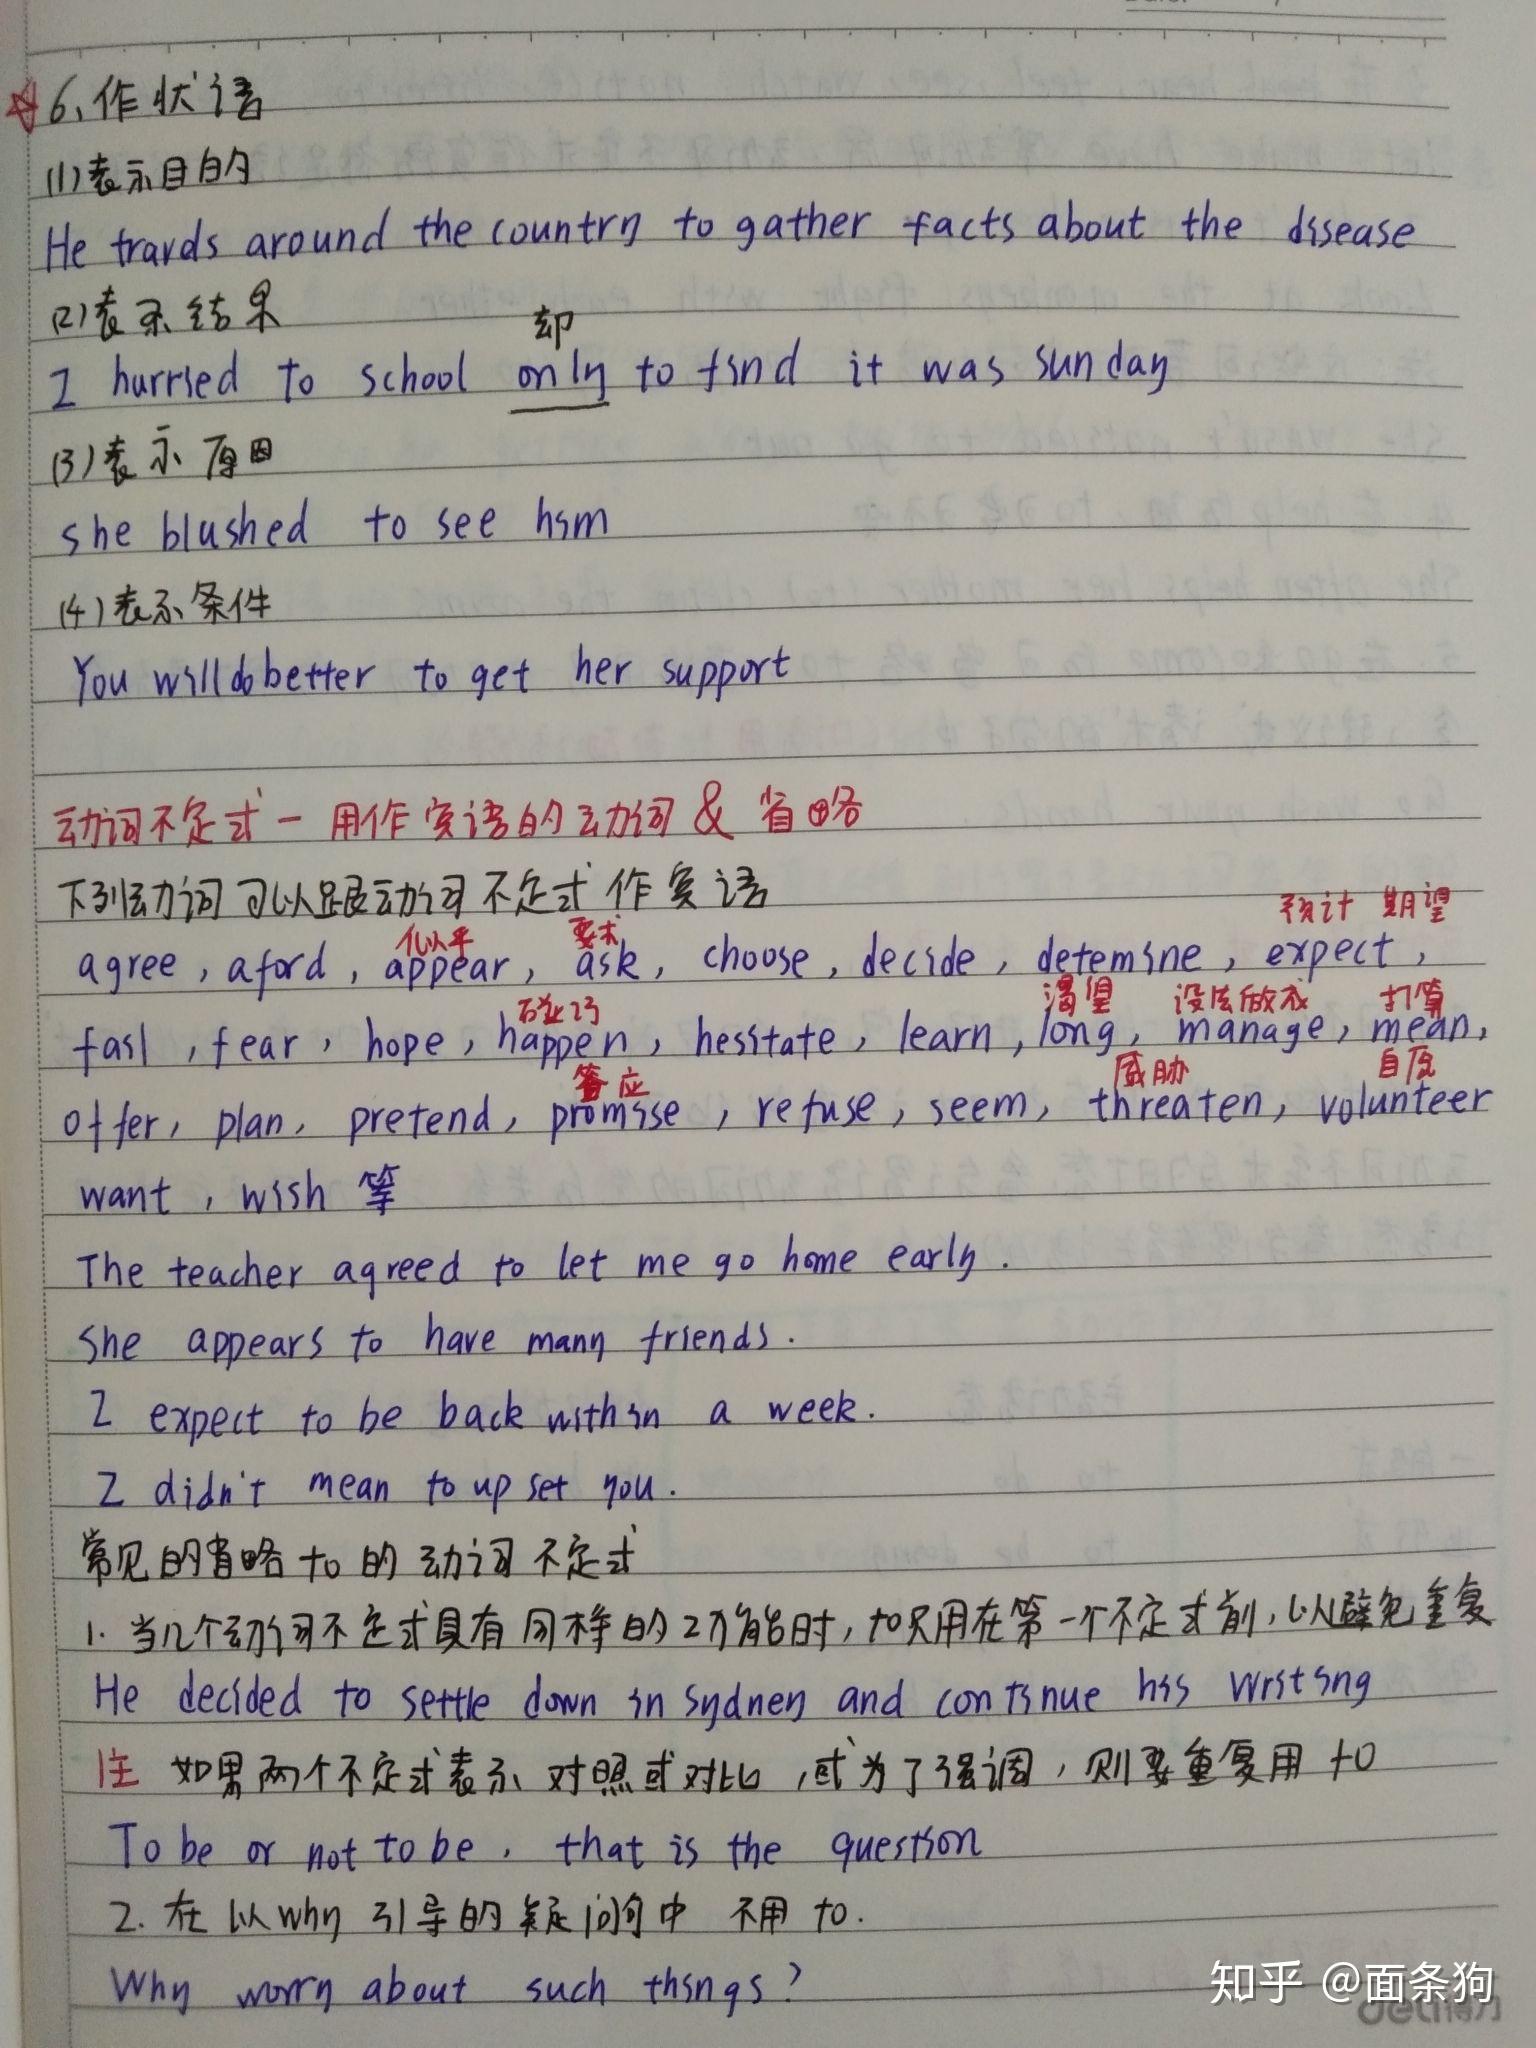 6、作状语
(1)表示目的
He travels around the country to gather facts about the disease
(2)表示结果
却
I hurried to school only to find it was sunday
(3)表示原因
she blushed to see him
(4)表示条件
You will do better to get her support
动词不定式一用作宾语的动词 & 省略
下列动词可以跟动词不定式作宾语
似乎 要求 预计 期望
agree, aford, appear, ask, choose, decide, detemine, expect,
碰巧 渴望 设法做成 打算
fail, fear, hope, happen, hesitate, learn, long, manage, mean,
答应 威胁 自愿
offer, plan, pretend, promise, refuse, seem, threaten, volunteer
want, wish 等
The teacher agreed to let me go home early.
She appears to have many friends.
I expect to be back within a week.
I didn't mean to upset you.
常见的省略 to 的动词不定式
1. 当几个动词不定式具有同样的功能时, to只用在第一个不定式前, 以避免重复
He decided to settle down in sydney and continue his writing
注 如果两个不定式表示对照或对比, 或为了强调, 则要重复用 to
To be or not to be, that is the question
2. 在以why引导的疑问句中 不用 to.
Why worry about such things?
知乎 @面条狗
deli得力